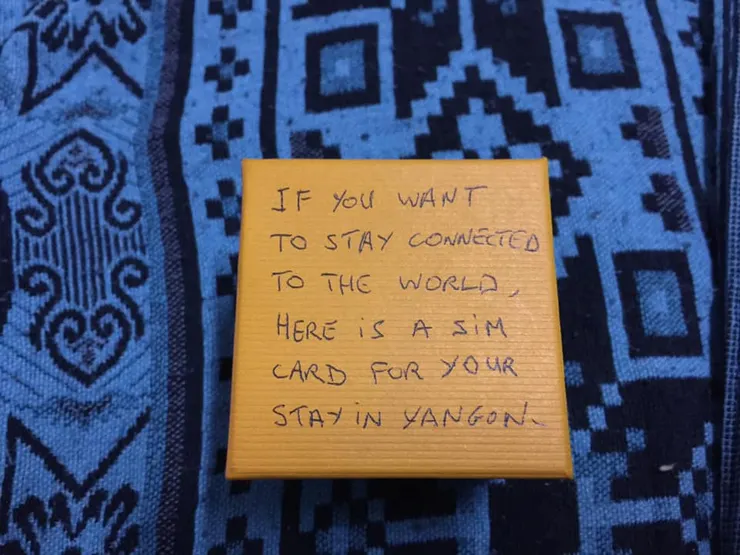 IF YOU WANT
TO STAY CONNECTED
TO THE WORLD,
HERE IS A SIM
CARD FOR YOUR
STAY IN YANGON.